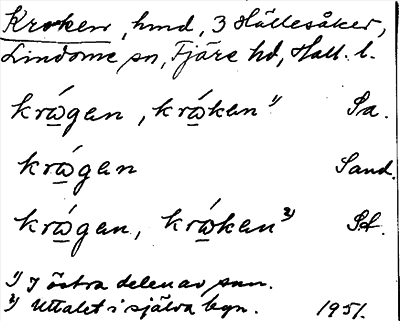 Kroken, hmd, 3 Hällesåker,
Lindome sn, Fjäre hd, Hall. l.
krώgan, krώkan ¹⁾ Sa.
krώgan Sand.
krώgan, krώkan ²⁾ St.
¹⁾ I östra delen av smn.
²⁾ Uttalet i själva byn. 1951.